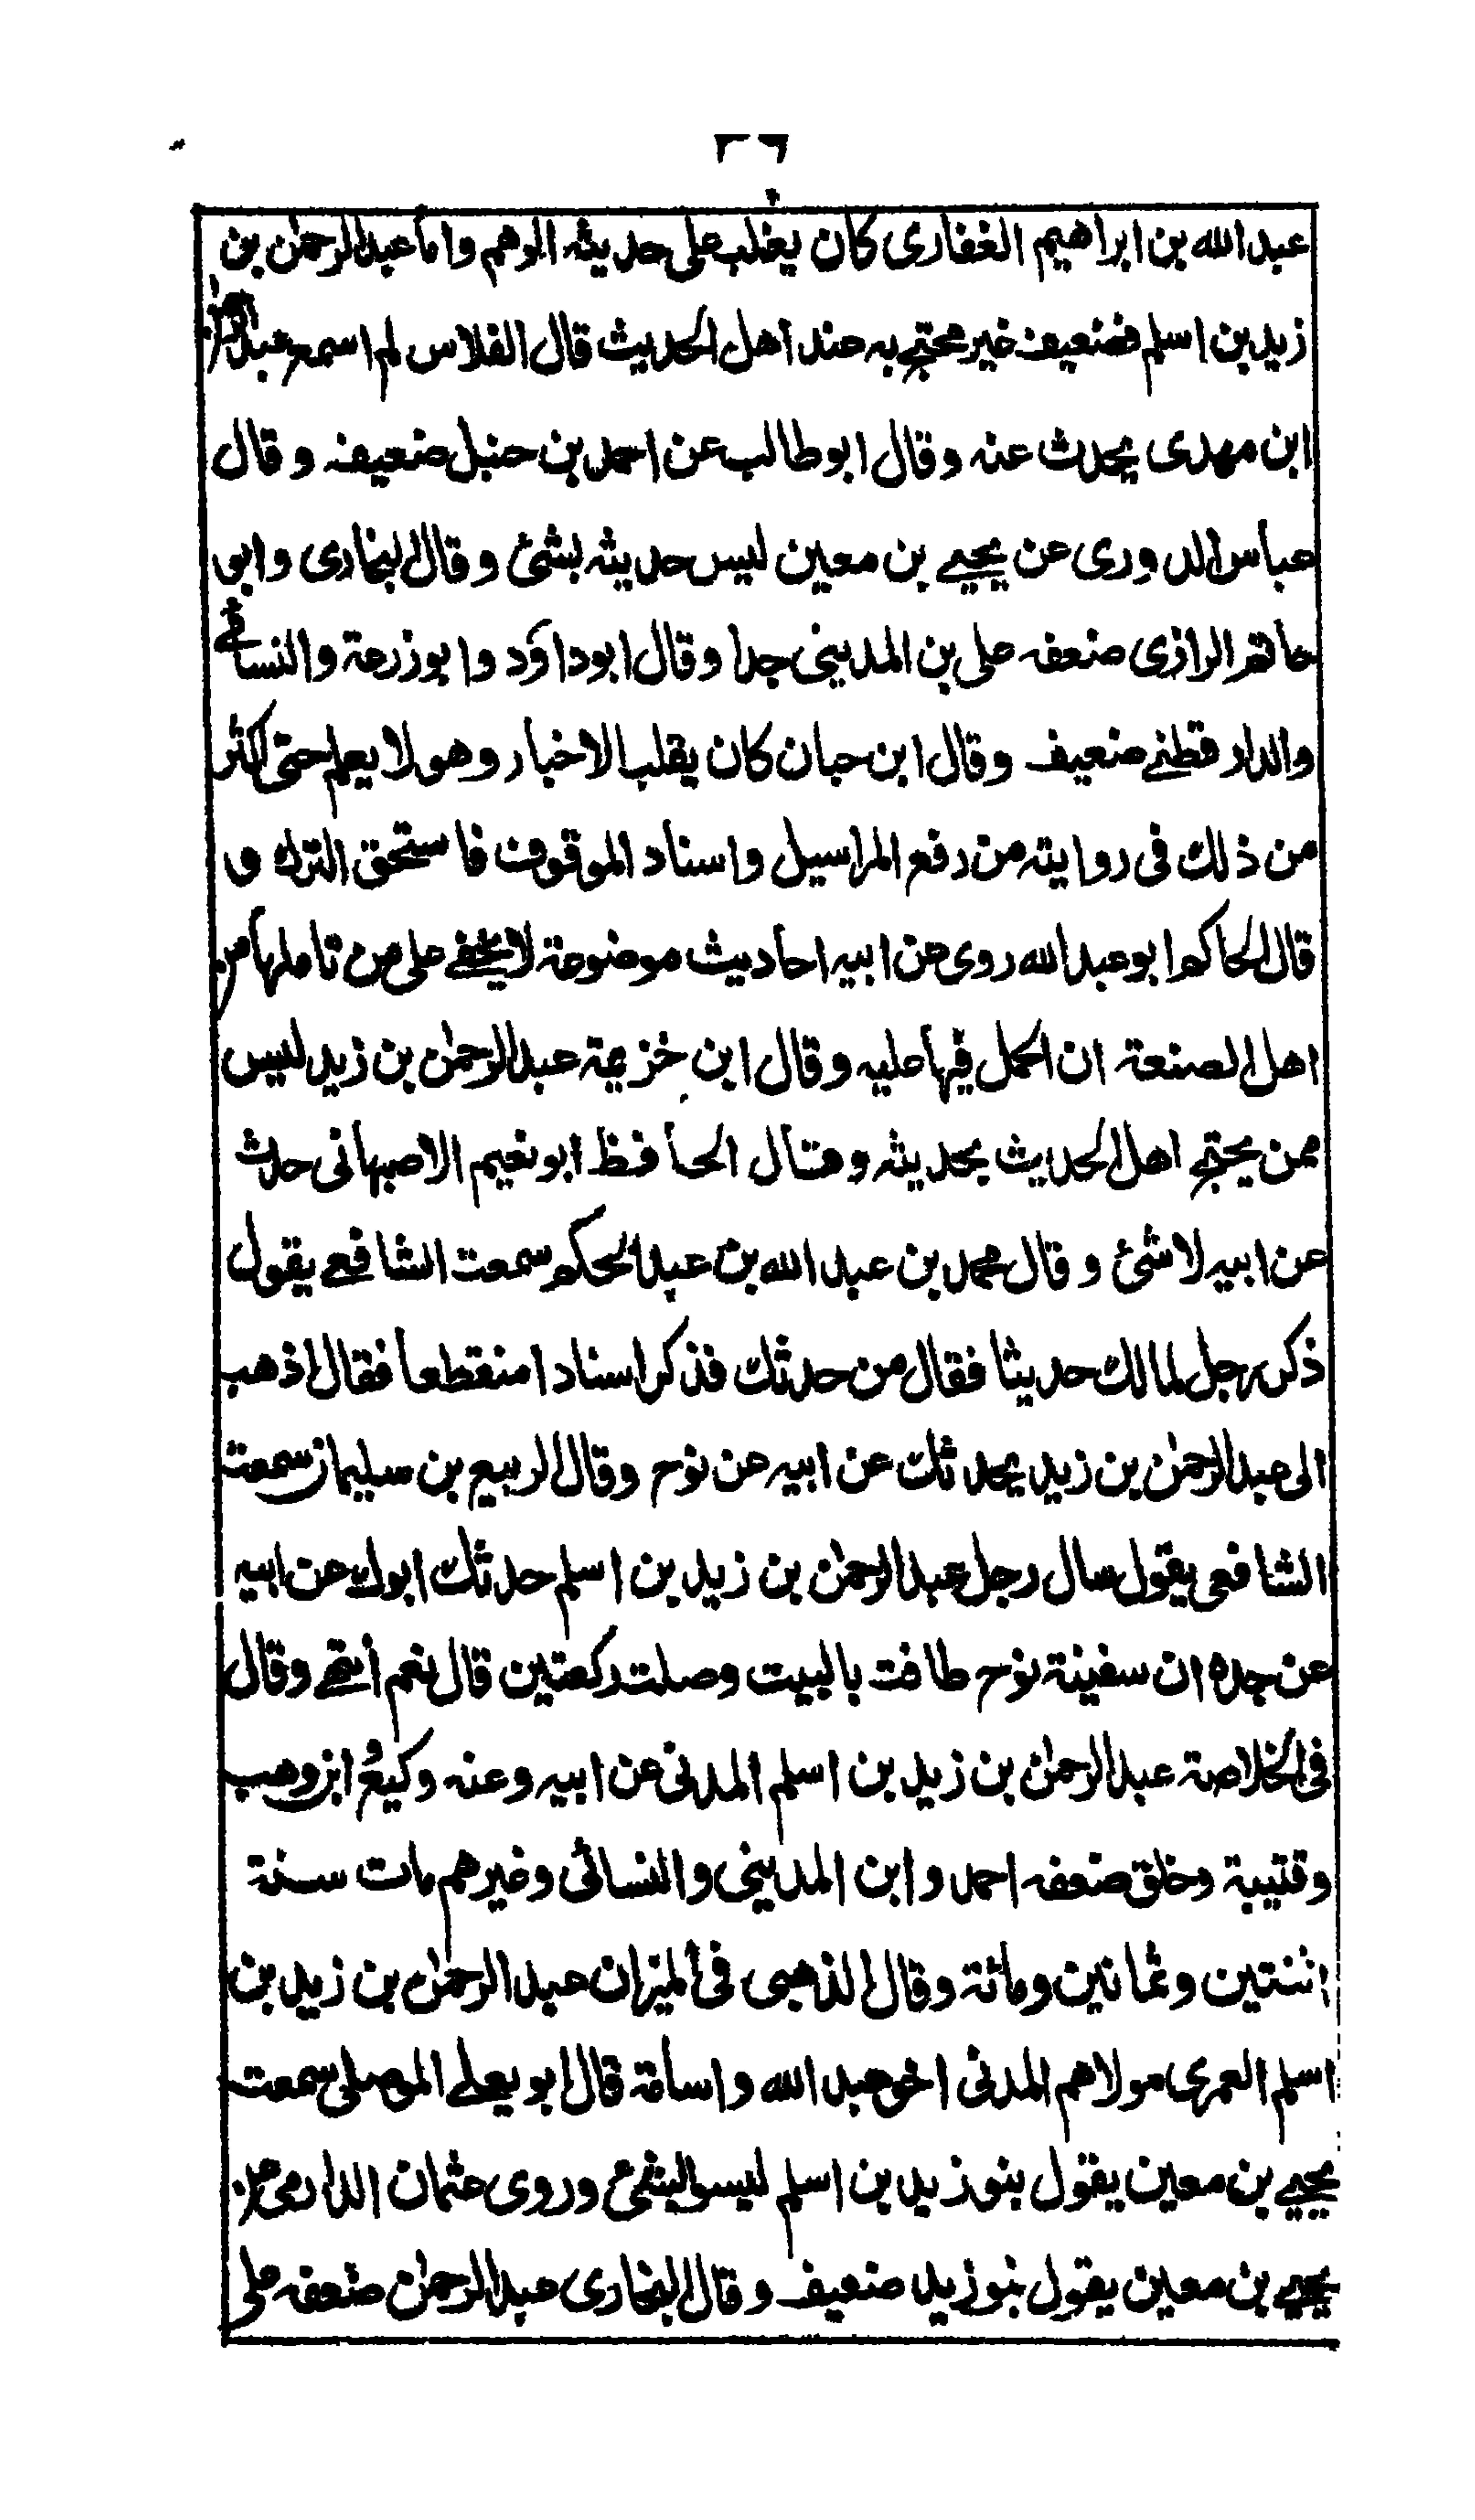 عبد الله بن ابراهيم الغفارى كان يغلب على حديثه الوهم واما عبد الرحمٰن بن
زيد بن اسلم فضعيف غير محتج به عند اهل الحديث قال الفلاس لم اسمع عبد الرحمن
ابن مهدى يحدث عنه وقال ابو طالب عن احمد بن حنبل ضعيف وقال
عباس الدورى عن يحيے بن معين ليس حديثه بشئ وقال البخارى وابو
حاتم الرازى ضعفه على بن المدينى جدا وقال ابو داؤد وابو زرعة والنسائے
والدار قطنے ضعيف وقال ابن حبان كان يقلب الاخبار وهو لا يعلم حتى كثر
من ذلك فى روايته من رفع المراسيل واسناد الموقوف فاستحق الترك و
قال الحاكم ابو عبد الله روى عن ابيه احاديث موضوعة لا يخفے على من تاملها من
اهل الصنعة ان الحمل فيها عليه وقال ابن خزيمة عبد الرحمٰن بن زيد ليس
ممن يحتج اهل الحديث بحديثه وقال الحافظ ابو نعيم الاصبهانى حدث
عن ابيه لا شئ وقال محمد بن عبد الله بن عبد الحكم سمعت الشافعے يقول
ذكر رجل لمالك حديثا فقال من حدثك فذكر اسنادا منقطعا فقال اذهب
الى عبد الرحمٰن بن زيد يحدثك عن ابيه عن نوح وقال الربيع بن سليمان سمعت
الشافعى يقول سال رجل عبد الرحمٰن بن زيد بن اسلم حدثك ابوك عن ابيه
عن جده ان سفينة نوح طافت بالبيت وصلت ركعتين قال نعم انتهے وقال
فى الخلاصة عبد الرحمٰن بن زيد بن اسلم المدنى عن ابيه وعنه وكيع وابن وهب
وقتيبة وخلق ضعفه احمد وابن المدينى والنسائى وغيرهم مات سنة
اثنتين وثمانين ومائة وقال الذهبى فى الميزان عبد الرحمٰن بن زيد بن
اسلم العمرى مولاهم المدنى اخو عبد الله واسامة قال ابو يعلے الموصلى سمعت
يحيے بن معين يقول بنو زيد بن اسلم ليسوا بشئ وروى عثمان الدارمى عن
يحيے بن معين يقول بنو زيد ضعيف وقال البخارى عبد الرحمٰن ضعفه على